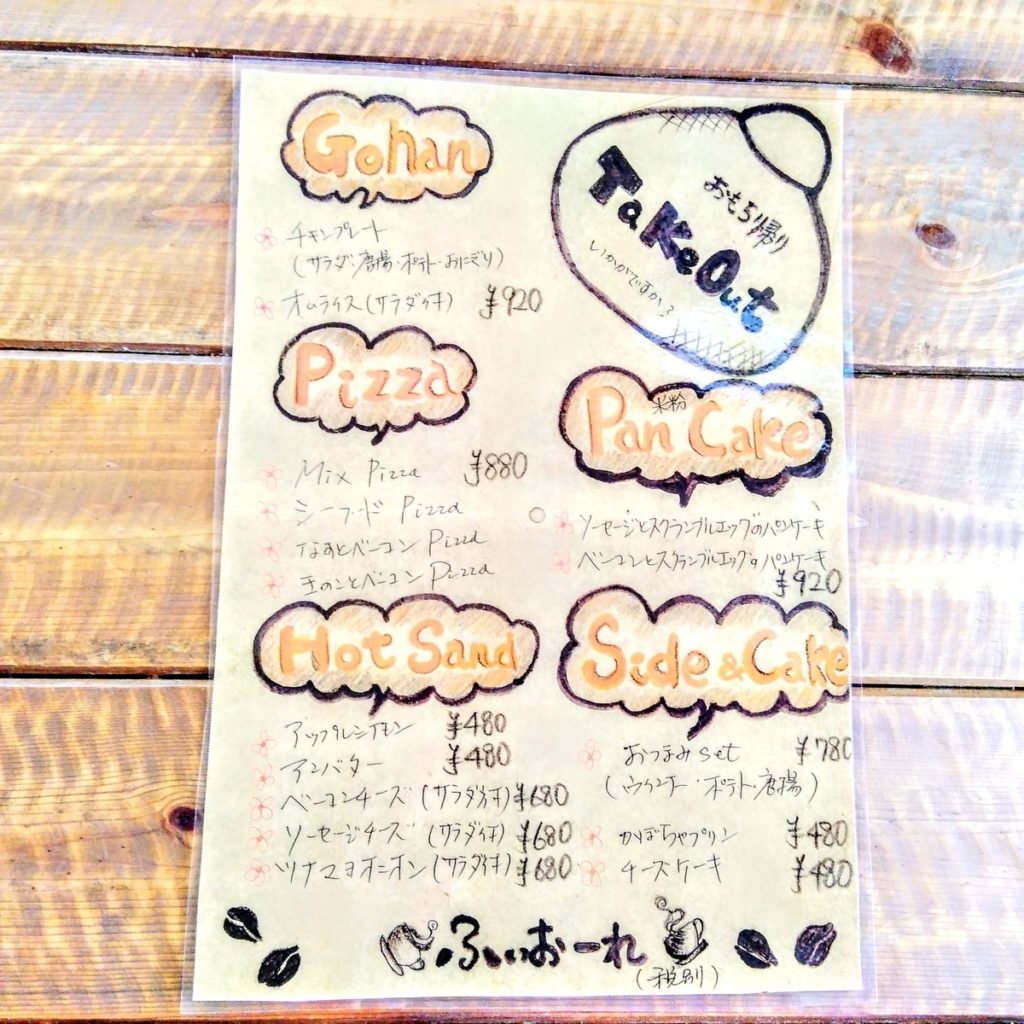 Gohan
チキンプレート
(サラダ・唐揚・ポテト・おにぎり)
オムライス(サラダ付) ¥920
おもち帰り
TaKeOut
いかがですか?
Pizza
Mix Pizza ¥880
シーフード Pizza
なすとベーコン Pizza
きのことベーコン Pizza
米粉
Pan Cake
ソーセージとスクランブルエッグのパンケーキ
ベーコンとスクランブルエッグのパンケーキ
¥920
Hot Sand
アップルシナモン ¥480
アンバター ¥480
ベーコンチーズ(サラダ付) ¥680
ソーセージチーズ(サラダ付) ¥680
ツナマヨオニオン(サラダ付) ¥680
Side & Cake
おつまみset ¥780
(ウインナー・ポテト・唐揚)
かぼちゃプリン ¥480
チーズケーキ ¥480
ふぃおーれ
(税別)